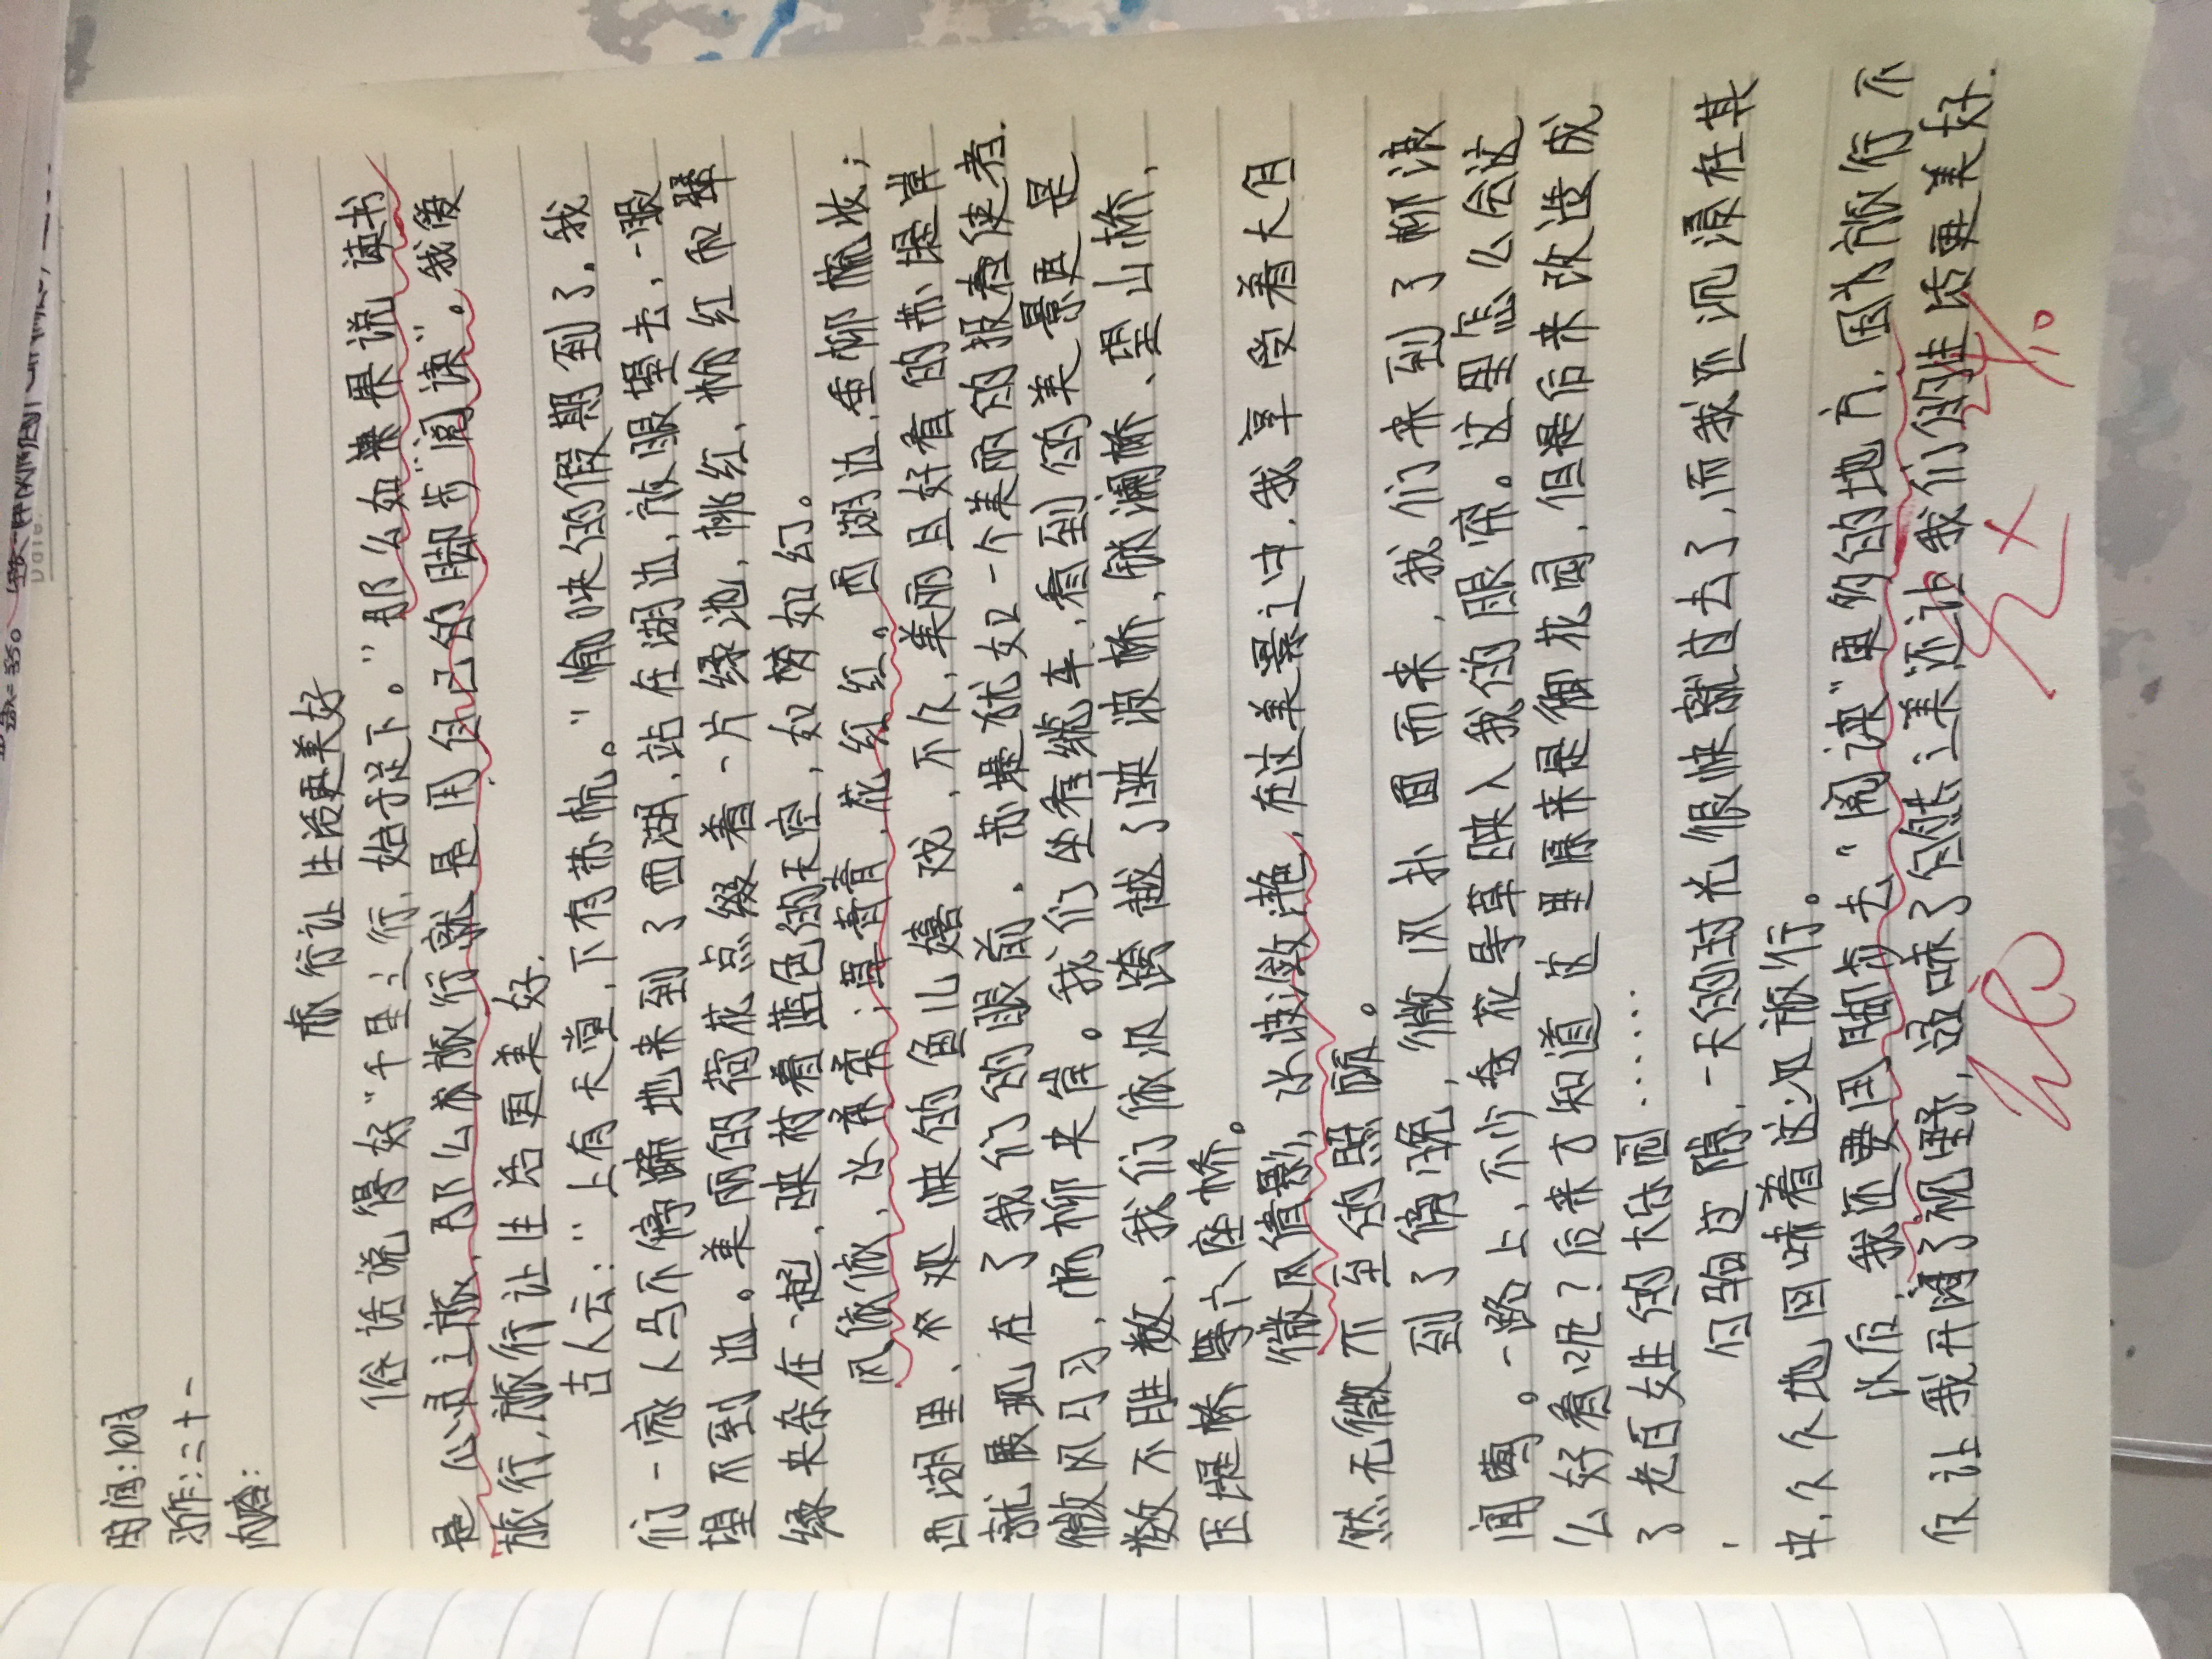 时间:10月
习作:二十一
内容:
旅行让生活更美好
俗话说得好“千里之行，始于足下。”那么如果说读书
是心灵之旅，那么旅行就是用自己的脚步“阅读”。我爱
旅行，旅行让生活更美好.
古人云：“上有天堂，下有苏杭。”愉快的假期到了.我
们一家人马不停蹄地来到了西湖，站在湖边，放眼望去，一眼
望不到边。美丽的荷花点缀着一片绿池，桃红、粉红和翠
绿夹杂在一起，映衬着蓝色的天空，如梦如幻。
风依依，水柔柔；草青青，花红红。西湖边，垂柳依依；
西湖里，欢快的鱼儿嬉戏，不久，美丽且好看的苏堤岸
就展现在了我们的眼前.苏堤犹如一个美丽的报春使者.
微风习习，杨柳夹岸。我们坐在缆车，看到的美景更是
数不胜数，我们依次跨越了映波桥，锁澜桥、望山桥、
压堤桥等六座桥。
微风借影，水波潋滟，在这美景之中，我享受着大自
然无微不至的照顾。
到了傍晚，微风扑面而来，我们来到了柳浪
闻莺。一路上，不少奇花异草映入我的眼帘。这里怎么会这
么好看呢？后来方知道这里原来是御花园，但是后来改造成
了老百姓的大乐园……
白驹过隙，一天的时光很快就过去了，而我还沉浸在其
中，久久地回味着这次旅行。
以后，我还要用脚步去“阅读”更多的地方，因为旅行不
仅让我开阔了视野，品味了自然之美还让我们的生活更美好.